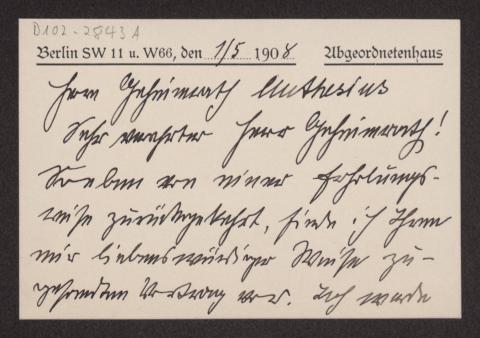 D102-2843A
Berlin SW 11 u. W66, den 1/5 1908 Abgeordnetenhaus
Herrn Geheimrath Muthesius
Sehr verehrter Herr Geheimrath!
Soeben von einer Erholungs-
reise zurückgekehrt, finde ich Ihren
mir liebenswürdiger Weise zu-
gesandten Vortrag vor. Ich werde